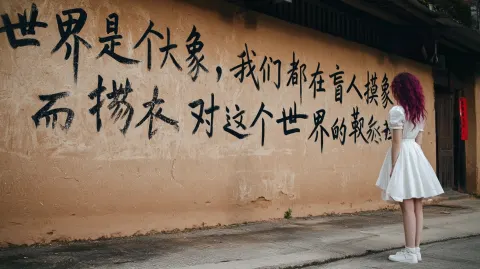 世世界是个大象,我们都在盲人摸象
而 衣 对这个世界的